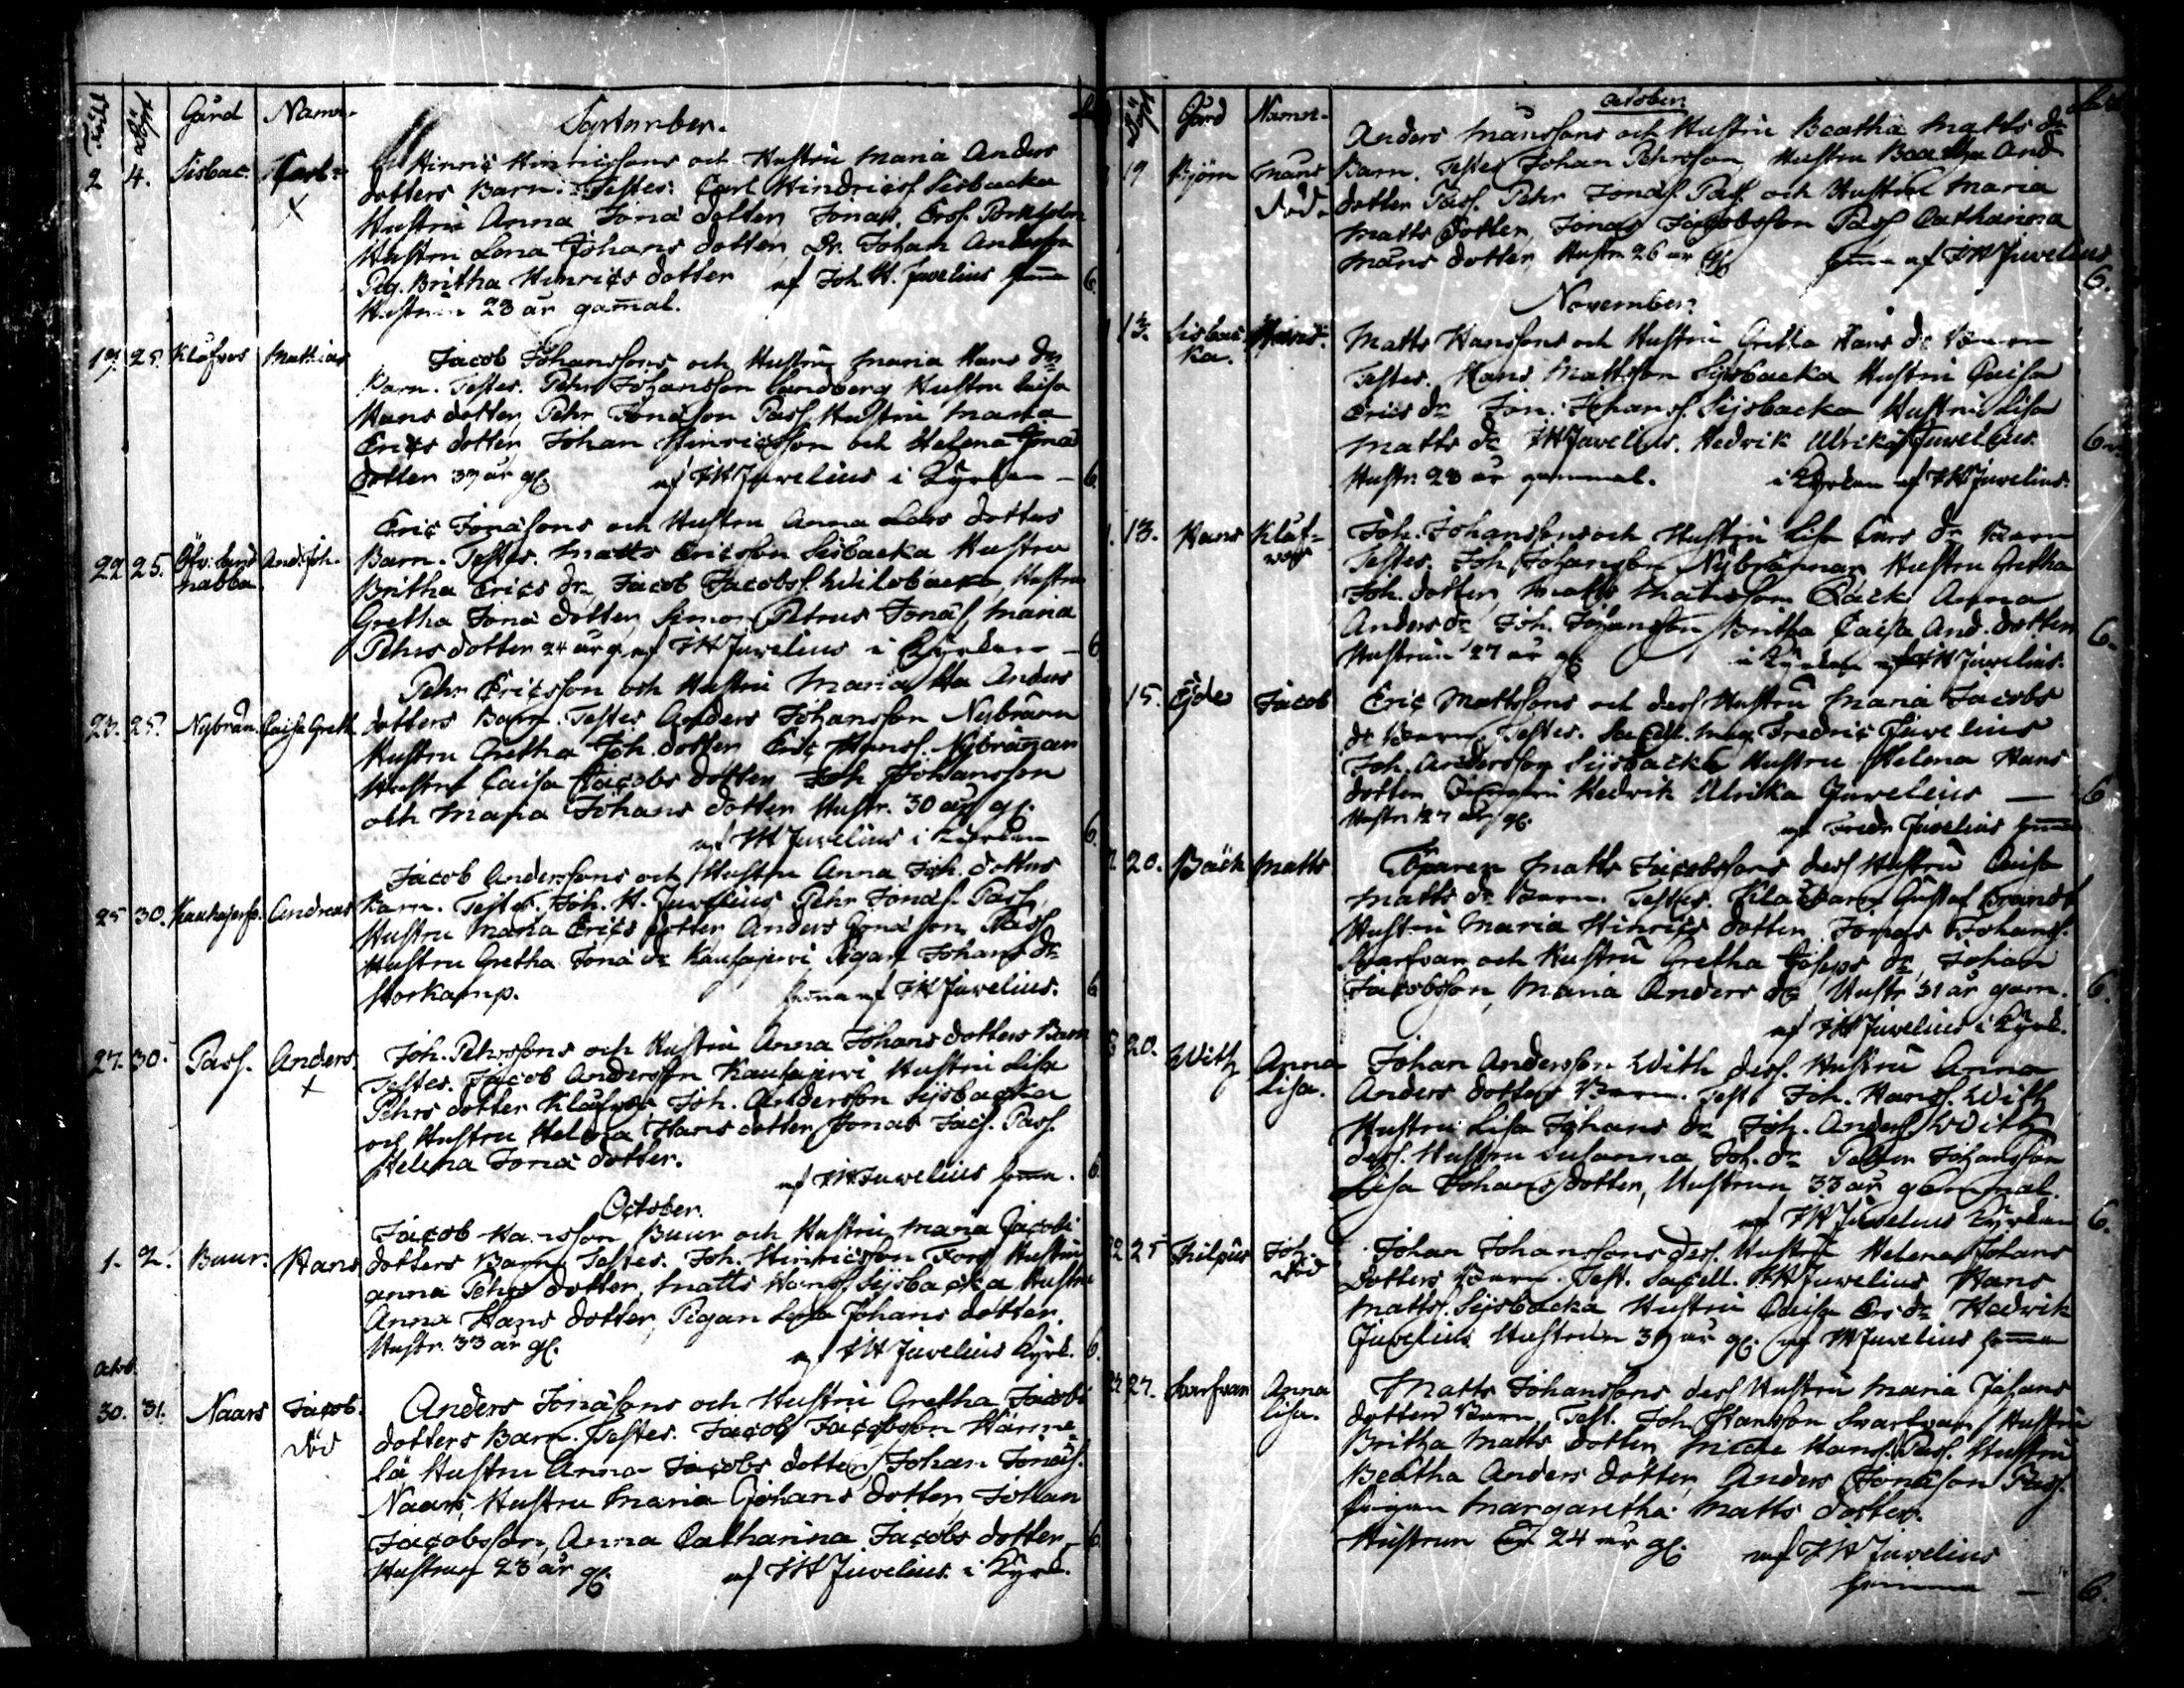 Gård Namn
September.
2 4. Sisbac. Carl
Hinric Hinricssons och Hustru Maria Anders
dotters Barn. Testes: Carl Hindricss. Sisbacka
Hustru Anna Jona dotter, Jonas
Hustru Lena Johans dotter, Dr. Johan Andersson
Pig. Britha Hinrics dotter af Joh. H. Juvelius hema 6.
Hustrun 23 år gamal.
19. 25. Klåfvos Mathias
Jacob Johanssons och Hustru Maria Hans dr
Barn. Testes. Pehr Johansson Sandberg Hustru Caisa
Hans dotter, Pehr Jonasson Pass, Hustru Maria
Erics dotter, Johan Hinricsson och Helena Jona
dotter 37 år gl. af JH Juvelius i Kyrkan - 6.
Eric Jonasons och Hustru Anna Lars dotters
22 25. nabba And. Joh.
Barn. Testes. Matts Ericsson Sisbacka Hustru
Britha Erics dr, Jacob Jacobss. Hustru
Gretha Jona dotter, Simon Petrus Jonas, Maria
Pehrs dotter 24 år g. af JH Juvelius i Kyrkan - 6
Pehr Ericsson och Hustru Maria Anders
23. 25. Nybrän. Caisa Greth.
dotters Barn. Testes Anders Johansson Nybränn
Hustru Gretha Joh. dotter Eric Hanss. Nybrännan
Hustru Caisa Jacobs dotter Joh Johansson
och Maria Johans dotter Hustr. 30 år gl.
af JH Juvelius i Kyrkan 6.
Jacob Anderssons och Hustru Anna Joh. dotters
25 30. Andreas
Barn. Testes. Joh. H. Juvelius Pehr Jonas. Pass,
Hustru Maria Erics dotter Anders Jonason Pass
Hustru Gretha Jona dr Kauhajerwi Pigan Johans dr
Storkamp. hema af JH Juvelius. 6
27. 30. Pass. Anders.
Joh. Pehrssons och Hustru Anna Johans dotters Barn
Testes. Jacob Andersson Kauhajerwi Hustru Lisa
Pehrs dotter Klåfvos Joh. Andersson Sijsbacka
och Hustru Helena Hans dotter, Jonas Jacs. Pass.
Helena Jona dotter.
af JH Juvelius hema. 6.
October.
Jacob Hansson Buur och Hustru Maria Jacobs
1. 2. Buur. Hans
dotters Barn. Testes. Joh. Hinricsson Fors Hustru
Anna Pehrs dotter, Matts Hanss Sijsbacka Hustru
Anna Hans dotter, Pigan Lisa Johans dotter.
Hustr. 33 år gl. af JH Juvelius Kyrk. 6.
octob.
30. 31. Naars Jacob. död
Anders Jonasons och Hustru Gretha Jacobs
dotters Barn. Testes. Jacob Jacobsson Hänne-
lä Hustru Anna Jacobs dotter, Johan Jonass.
Naars, Hustru Maria Johans dotter, Johan
Jacobsson, Anna Catharina Jacobs dotter 6.
Hustrun 23 år gl. af JH Juvelius i Kyrk.
Döpt Gård Namn
october
Anders Månssons och Hustru Beatha Matts dr
19 Björn Måns död.
Barn. Testes Johan Pehrsson, Hustru Beatha And
dotter Pass. Pehr Jonas. Pass. och Hustru Maria
Matts dotter, Jonas Jacobsson Pass Catharina
Måns dotter, Hustr 26 år gl hema af JH Juvelius 6.
November.
13. Sisbac ka. Hans.
Matts Hanssons och Hustru Gretha Hans dr Barn
Testes. Hans Mattsson Sijsbacka Hustru Caisa
Erics dr Jon. Johanss. Sijsbacka Hustru Lisa
Matts dr JH Juvelius. Hedvik Ulrika Juvelius. 6.
Hustr. 23 år gammal. i Kyrkan af JH Juvelius.
13. Hans Klåf-vos
Joh. Johanssons och Hustru Lisa Lars dr Barn
Testes. Joh. Johansson Nybrännan Hustru Gretha
Joh. dotter, Matts Matsson Bäck Anna
Anders dr Joh. Johansson, Britha Caisa And. dotter 6.
Hustrun 27 år gl i Kyrkan af JH Juvelius.
15. Öjde Jacob
Eric Mattssons och dess Hustru Maria Jacobs
dr Barn. Testes. Sacell. Mag Fredric Juvelius
Joh. Andersson Sijsbacka Hustru Helena Hans
dotter Hedvik Ulrika Juvelius - 6
Hustr. 27 år gl. af Fredr Juvelius hema
20. Bäck Matts
Matts Jacobssons dess Hustru Caisa
Matts dr Barn. Testes. Gustaf Brandt
Hustru Maria Hinrics dotter, Jonas Johanss.
Svarfvar och Hustru Gretha Joseps dr, Johan
Jacobsson, Maria Anders dr, Hustr 31 år gam. 6.
af JH Juvelius i Kyrk.
20. With Anna Lisa.
Johan Andersson With dess. Hustru Anna
Anders dotters Barn. Test. Joh. Hanss. With
Hustru Lisa Johans dr Joh. Anders. With
dess. Hustru Susanna Joh. dr Johansson
Lisa Johans dotter, Hustrun 33 år gammal.
af JH Juvelius Kyrkan 6.
22 25 Philpus Joh. död
Johan Johanssons dess. Hustru Helena Johans
dotters Barn. Test. Sacell. JH Juvelius Hans
Mattss. Sijsbacka Hustru Caisa Ers dr Hedvik
Juvelius Hustrun 39 år gl. af JH Juvelius hema
27. Svarfvar Anna lisa.
Matts Johanssons dess Hustru Maria Johans
dotters Barn. Test. Joh Hansson Svarfvar, Hustru
Britha Matts dotter, Hans. Pass. Hustru
Beatha Anders dotter, Anders Jonason Pass.
Pigan Margaretha Matts dotter.
Hustrun 24 år gl. af JH Juvelius
hemma - 6.